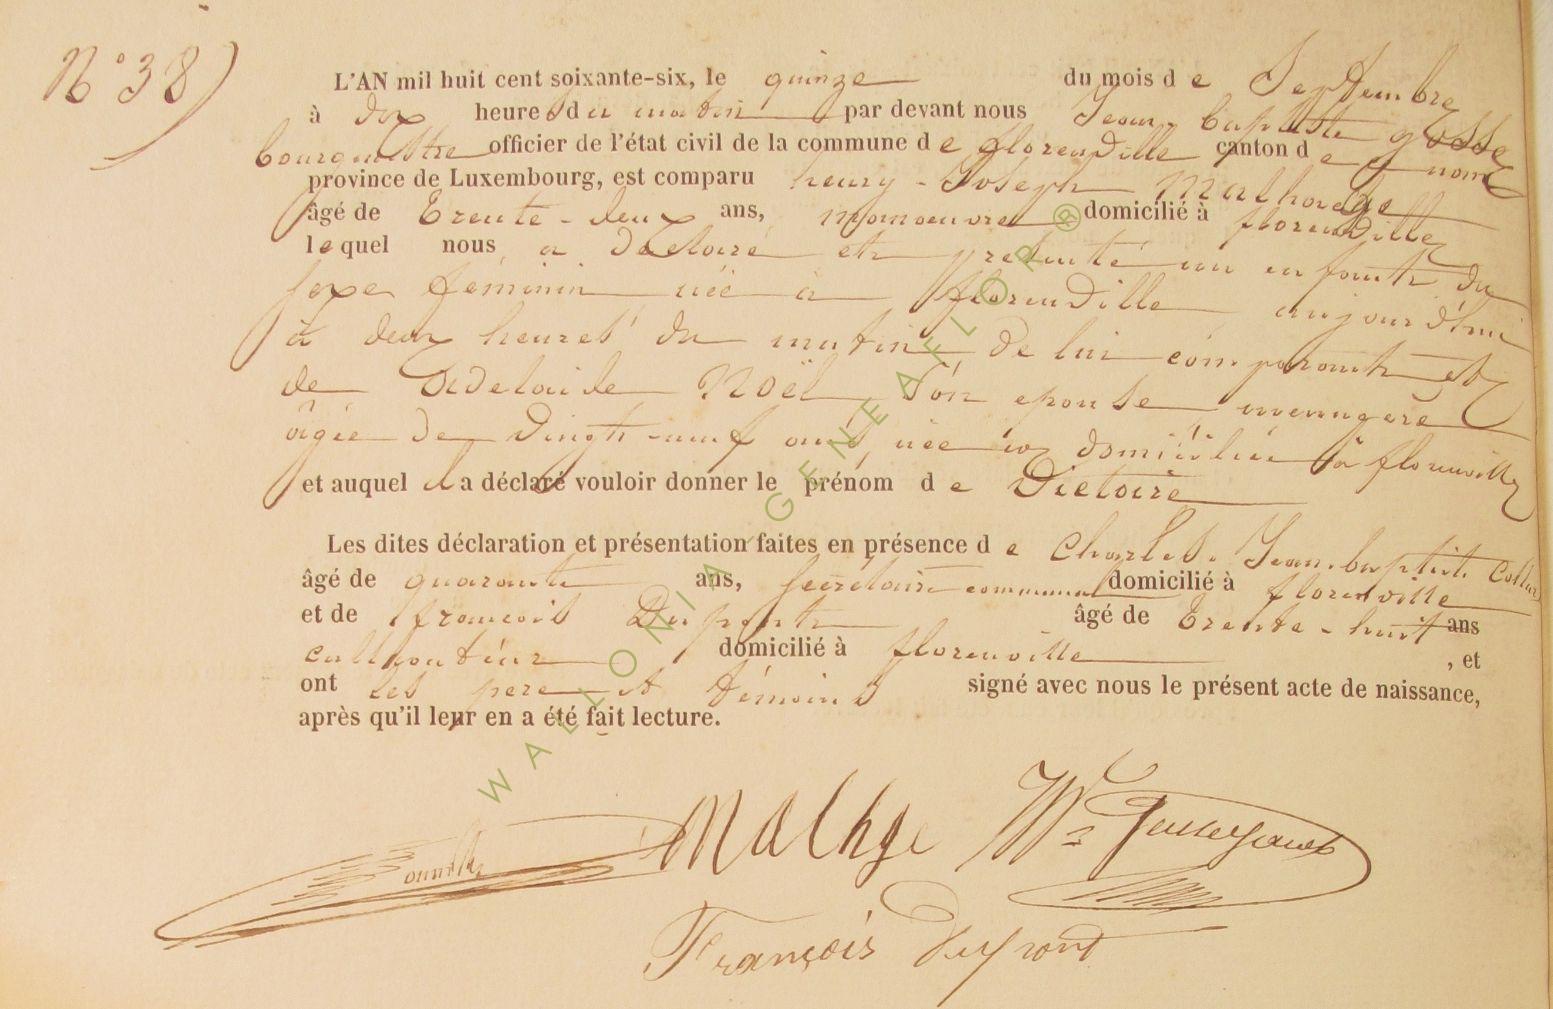 N° 38)
L'AN mil huit cent soixante-six, le quinze du mois de Septembre
à dix heures du matin par devant nous Jean-baptiste
bourgmestre officier de l'état civil de la commune de florenville canton de
province de Luxembourg, est comparu henry-Joseph
âgé de trente-deux ans, manoeuvre domicilié à florenville
lequel nous a déclaré et présenté un enfant du
sexe féminin née à florenville aujourd'hui
à deux heures du matin de lui comparant et
de Adelaide Noël son epouse menagère
âgée de vingt-neuf ans, née et domiciliée à florenville
et auquel il a déclaré vouloir donner le prénom de Victoire
Les dites déclaration et présentation faites en présence de Charles, Jean-baptiste
âgé de quarante ans, secrétaire communal domicilié à florenville
et de françois Dupont âgé de trente-huit ans
cultivateur domicilié à florenville, et
ont les pere et témoins signé avec nous le présent acte de naissance,
après qu'il leur en a été fait lecture.
Malhge
François dupont
WALLONIA GENEAFLOR®